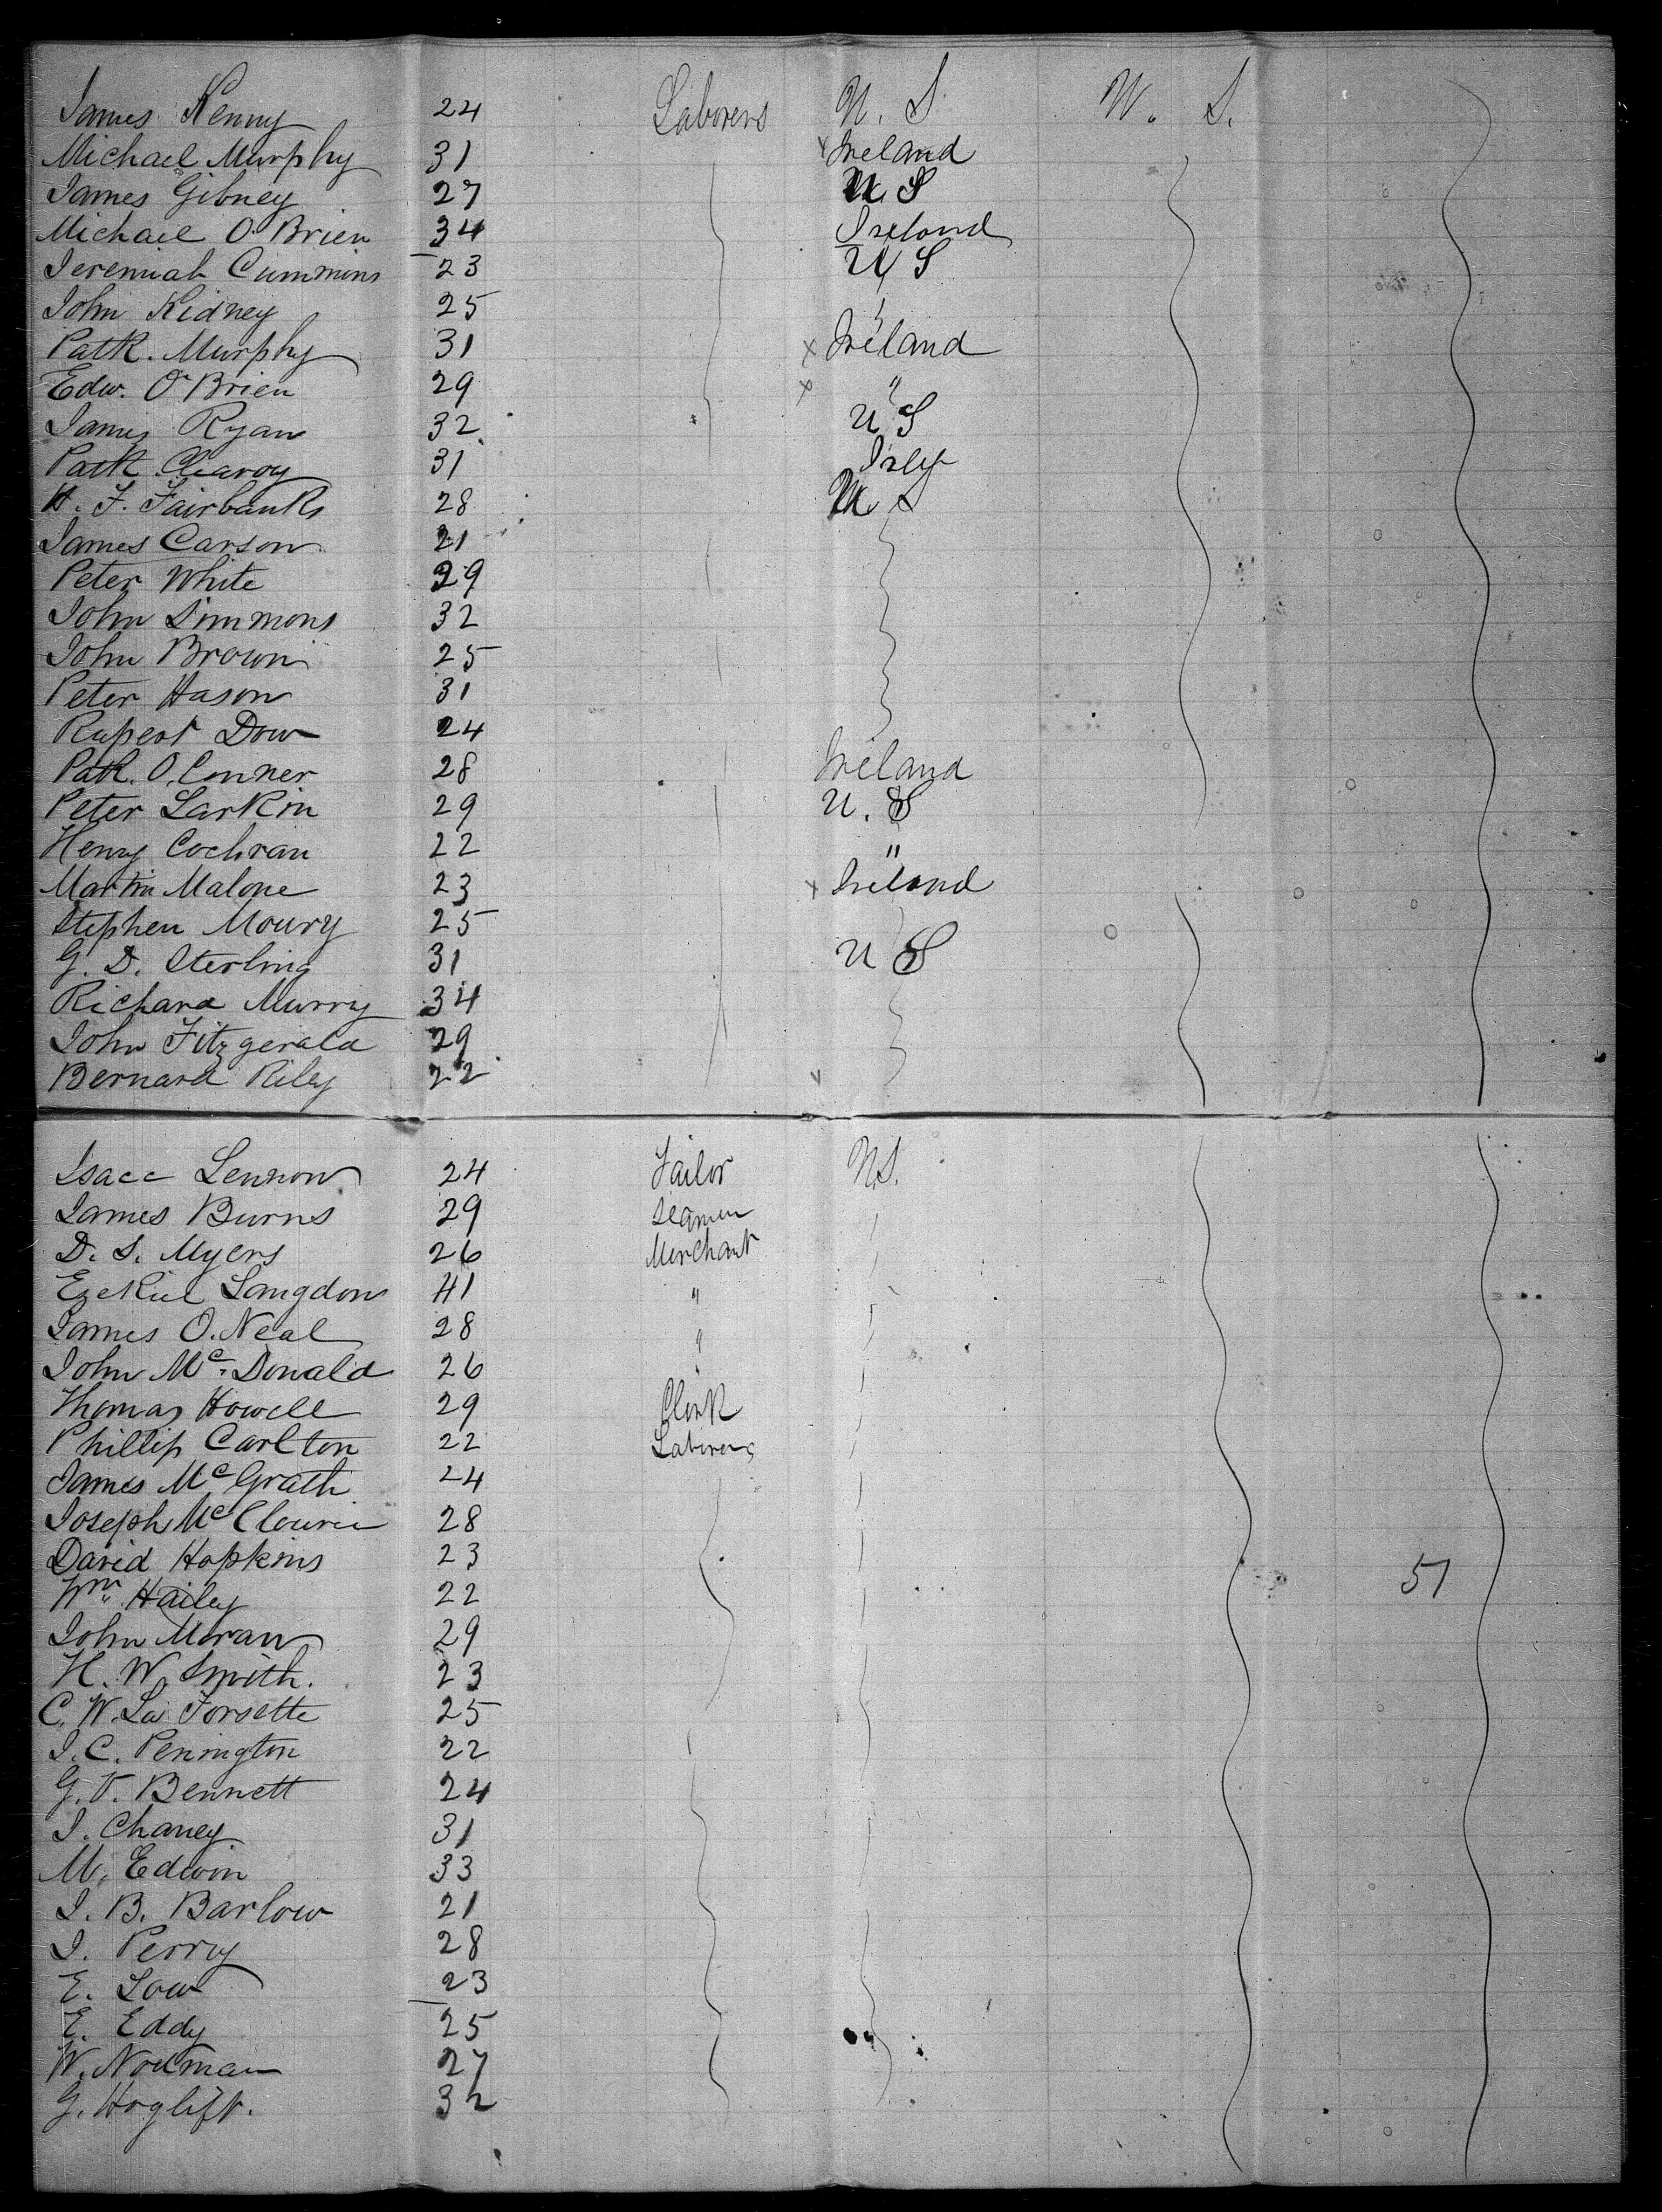 James Kenny 24 Laborers U. S U. S.
Michael Murphy 31 x Ireland
James Gibney 27 U S
Michael O'Brien 34 Ireland
Jeremiah Cummins 23 U S
John Kidney 25
Patk. Murphy 31 x Ireland
Edw. O'Brien 29 x "
James Ryan 32 U S
Patk 31
H. F. Fairbanks 28 U S
James Carson 21
Peter White 29
John Simmons 32
John Brown 25
Peter Hason 31
Rupert Dow 24
Patk. O. Conner 28 Ireland
Peter Larkin 29 U. S
Henry Cochran 22 "
Martin Malone 23 x Ireland
Stephen Moury 25
G. D. Sterling 31 U S
Richard Murry 34
John Fitzgerald 29
Bernard Riley 22
Isacc Lennon 24 Tailor U.S.
James Burns 29 Seamen
D. S. Myers 26 Merchant
Ezekiel Langdon 41 "
James O. Neal 28 "
John Mc. Donald 26 "
Thomas Howell 29 Clerk
Phillip Carlton 22 Laborers
James McGrath 24
Joseph 28
David Hopkins 23 51
Wm. Hailey 22
John Moran 29
H. W. Smith. 23
C. W. La Forsette 25
J. C. Penington 22
G. T. Bennett 24
J. Chaney 31
M. Edwin 33
J. B. Barlow 21
J. Perry 28
E. Low 23
E. Eddy 25
W. Nodman 27
G. 32